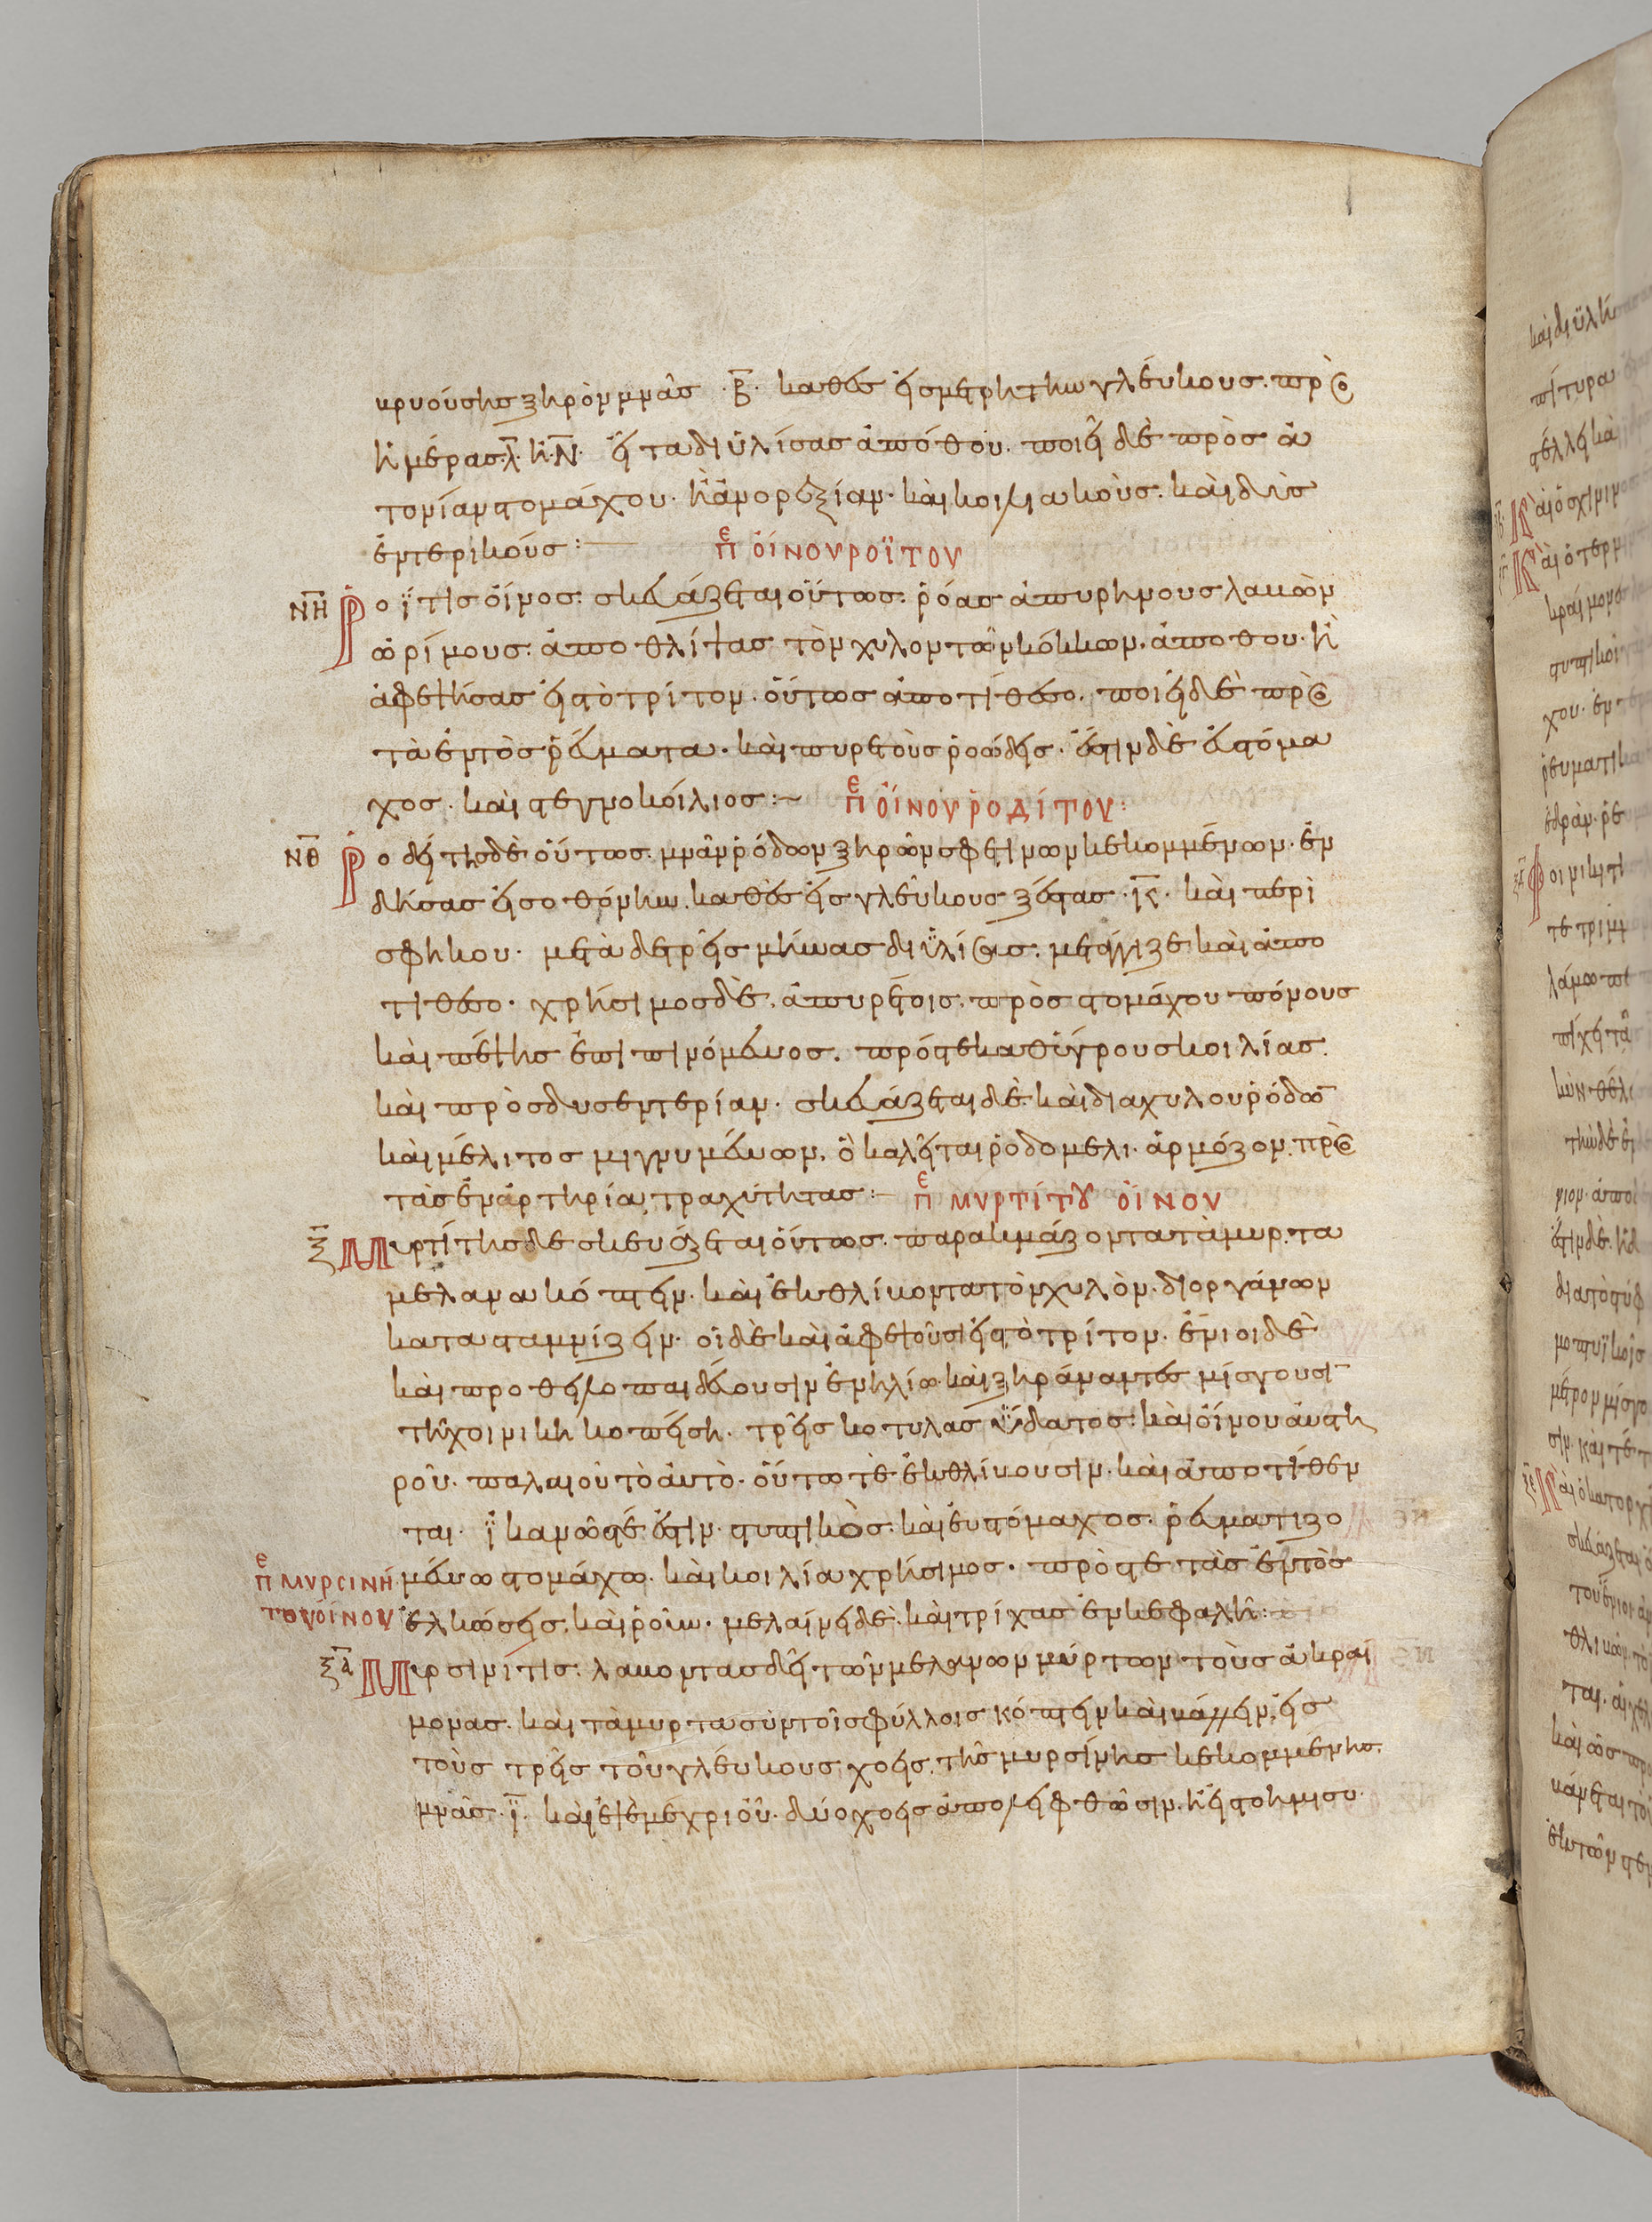 κρυούσης ξηρὸν μνᾶς ·β̅· καθὲς εἰς μετρητὴν γλεύκους. πρὸ
ἡμέρας ·λ̅· ἢ ·Ν̅· εἶτα διϋλίσας ἀπόθου. ποιεῖ δὲ πρὸς ἀ
τονίαν στομάχου. καὶ ἀνορεξίαν. καὶ κοιλιακοὺς. καὶ δυσ
εντερικούς :—
πε ΟΙΝΟΥ ΡΟΪΤΟΥ
ΝΗ Ροΐτης οἶνος. σκευάζεται οὕτως. ῥόας ἀπυρήνους λαβὼν
ὡρίμους. ἀποθλίψας τὸν χυλὸν τῶν κόκκων. ἀπόθου. ἢ
ἀφεψήσας εἰς τὸ τρίτον. οὕτως ἀποτίθεσο. ποιεῖ δὲ πρὸς
τὰ ἐντὸς ῥεύματα. καὶ πυρετοὺς ῥοώδεις. ἔστιν δὲ εὐστόμα
χος. καὶ στεγνοκοίλιος :~
πε ΟΙΝΟΥ ΡΟΔΙΤΟΥ:
ΝΘ Ροδίτης δὲ οὕτως. μνᾶν ῥόδων ξηρῶν ὀρεινῶν κεκομμένων. ἐν
δήσας εἰς ὀθόνην. καθὲς εἰς γλεύκους ξέστας ·ι̅ς̅· καὶ περι
σφήκου. μετὰ δὲ τρεῖς μῆνας διϋλίσας. μετάγγιζε καὶ ἀπο
τίθεσο. χρήσιμος δὲ. ἀπυρέτοις. πρὸς στομάχου πόνους
καὶ πέψης ἐπιπινόμενος. πρός τε καθύγρους κοιλίας.
καὶ πρὸς δυσεντερίαν. σκευάζεται δὲ καὶ διὰ χυλοῦ ῥόδων
καὶ μέλιτος μιγνυμένων. ὃ καλεῖται ῥοδόμελι. ἁρμόζον. πρὸς
τὰς ἐν ἀρτηρία τραχύτητας :—
πε ΜΥΡΤΙΤΟΥ ΟΙΝΟΥ
Ξ Μυρτίτης δὲ σκευάζεται οὕτως. παρακμάζοντα τὰ μύρτα
μέλανα κόπτειν. καὶ ἐκθλίβοντα τὸν χυλὸν. δι ὀργάνων
κατασταμνίζειν. οἱ δὲ καὶ ἀφεψοῦσι εἰς τὸ τρίτον. ἔνιοι δὲ
καὶ προθειλοπαιδεύουσιν ἐν ἡλίω. καὶ ξηράναντες μίσγουσι
τῆ χοίνικι κοπείση. τρεῖς κοτύλας ὕδατος. καὶ οἴνου αὐστη
ροῦ. παλαιοῦ τὸ αὐτὸ. οὕτω τὲ ἐκθλίβουσιν. καὶ ἀποτίθεν
ται. ἱκανῶς τέ ἐστιν. στυπτικὸς. καὶ εὐστόμαχος. ῥευματιζο
μένω στομάχω. καὶ κοιλία χρήσιμος. πρός τε τὰς ἐντὸς
ἑλκώσεις. καὶ ῥοῦν. μελαίνει δὲ. καὶ τρίχας ἐν κεφαλῆ :
πε ΜΥΡΣΙΝΙ
ΤΟΥ ΟΙΝΟΥ
ΞΑ Μυρσινίτις. λαβόντας δεῖ τῶν μελάνων μύρτων τοὺς ἀκραί
μονας. καὶ τὰ μύρτα σὺν τοῖς φύλλοις κόπτειν καὶ βάλλειν. εἰς
τοὺς τρεῖς τοῦ γλεύκους χοεῖς. τῆς μυρσίνης κεκομμένης.
μνᾶς ·ι̅· καὶ ἕψε μέχρι οὗ. δύο χοεῖς ἀπολειφθῶσιν. ἢ εἰς τὸ ἥμισυ.